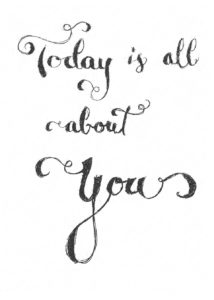 Today is all
about
You